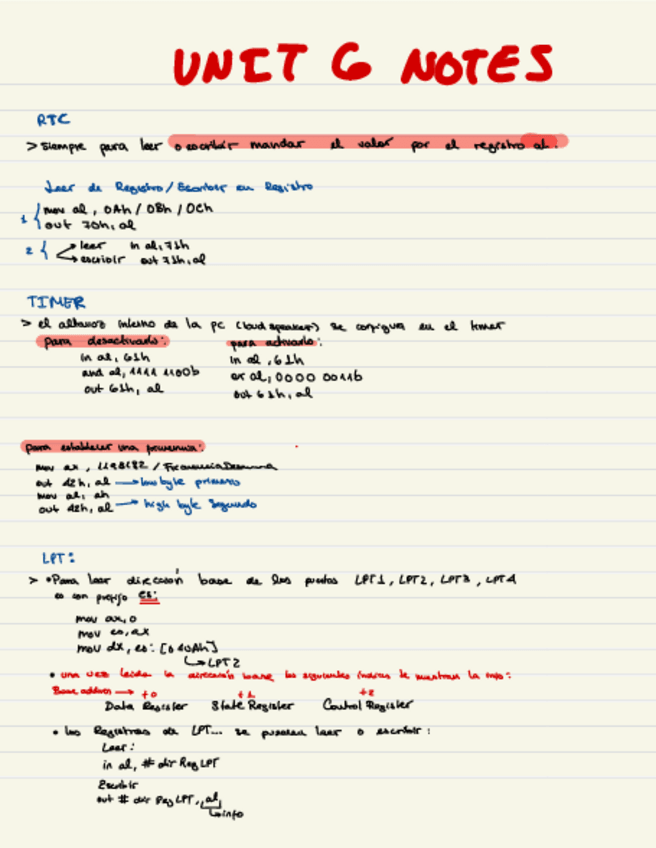 UNIT 6 NOTES
RTC
> Siempre para leer o escribir mandar el valor por el registro al.
Leer de Registro/Escribir en Registro
1 { mov al, 0Ah / 0Bh / 0Ch
out 70h, al
2 { → leer in al, 71h
→ escribir out 71h, al
TIMER
> el altavoz interno de la pc (loud speaker) se configura en el timer
para desactivarlo: para activarlo:
in al, 61h in al, 61h
and al, 1111 1100b or al, 0000 0011b
out 61h, al out 61h, al
para establecer una frecuencia:
mov ax, 1193182 / Frecuencia
out 42h, al → low byte primero
mov al, ah
out 42h, al → high byte segundo
LPT:
> • Para leer dirección base de los puertos LPT1, LPT2, LPT3, LPT4
es con prefijo es:
mov ax, 0
mov es, ax
mov dx, es: [040Ah]
↳ LPT2
• una vez leída la dirección base los siguientes índices te muestran la info:
Base address → +0 +1 +2
Data Register State Register Control Register
• los Registros de LPT... se pueden leer o escribir:
Leer:
in al, # dir Reg LPT
Escribir
out # dir Reg LPT, al
↳ info